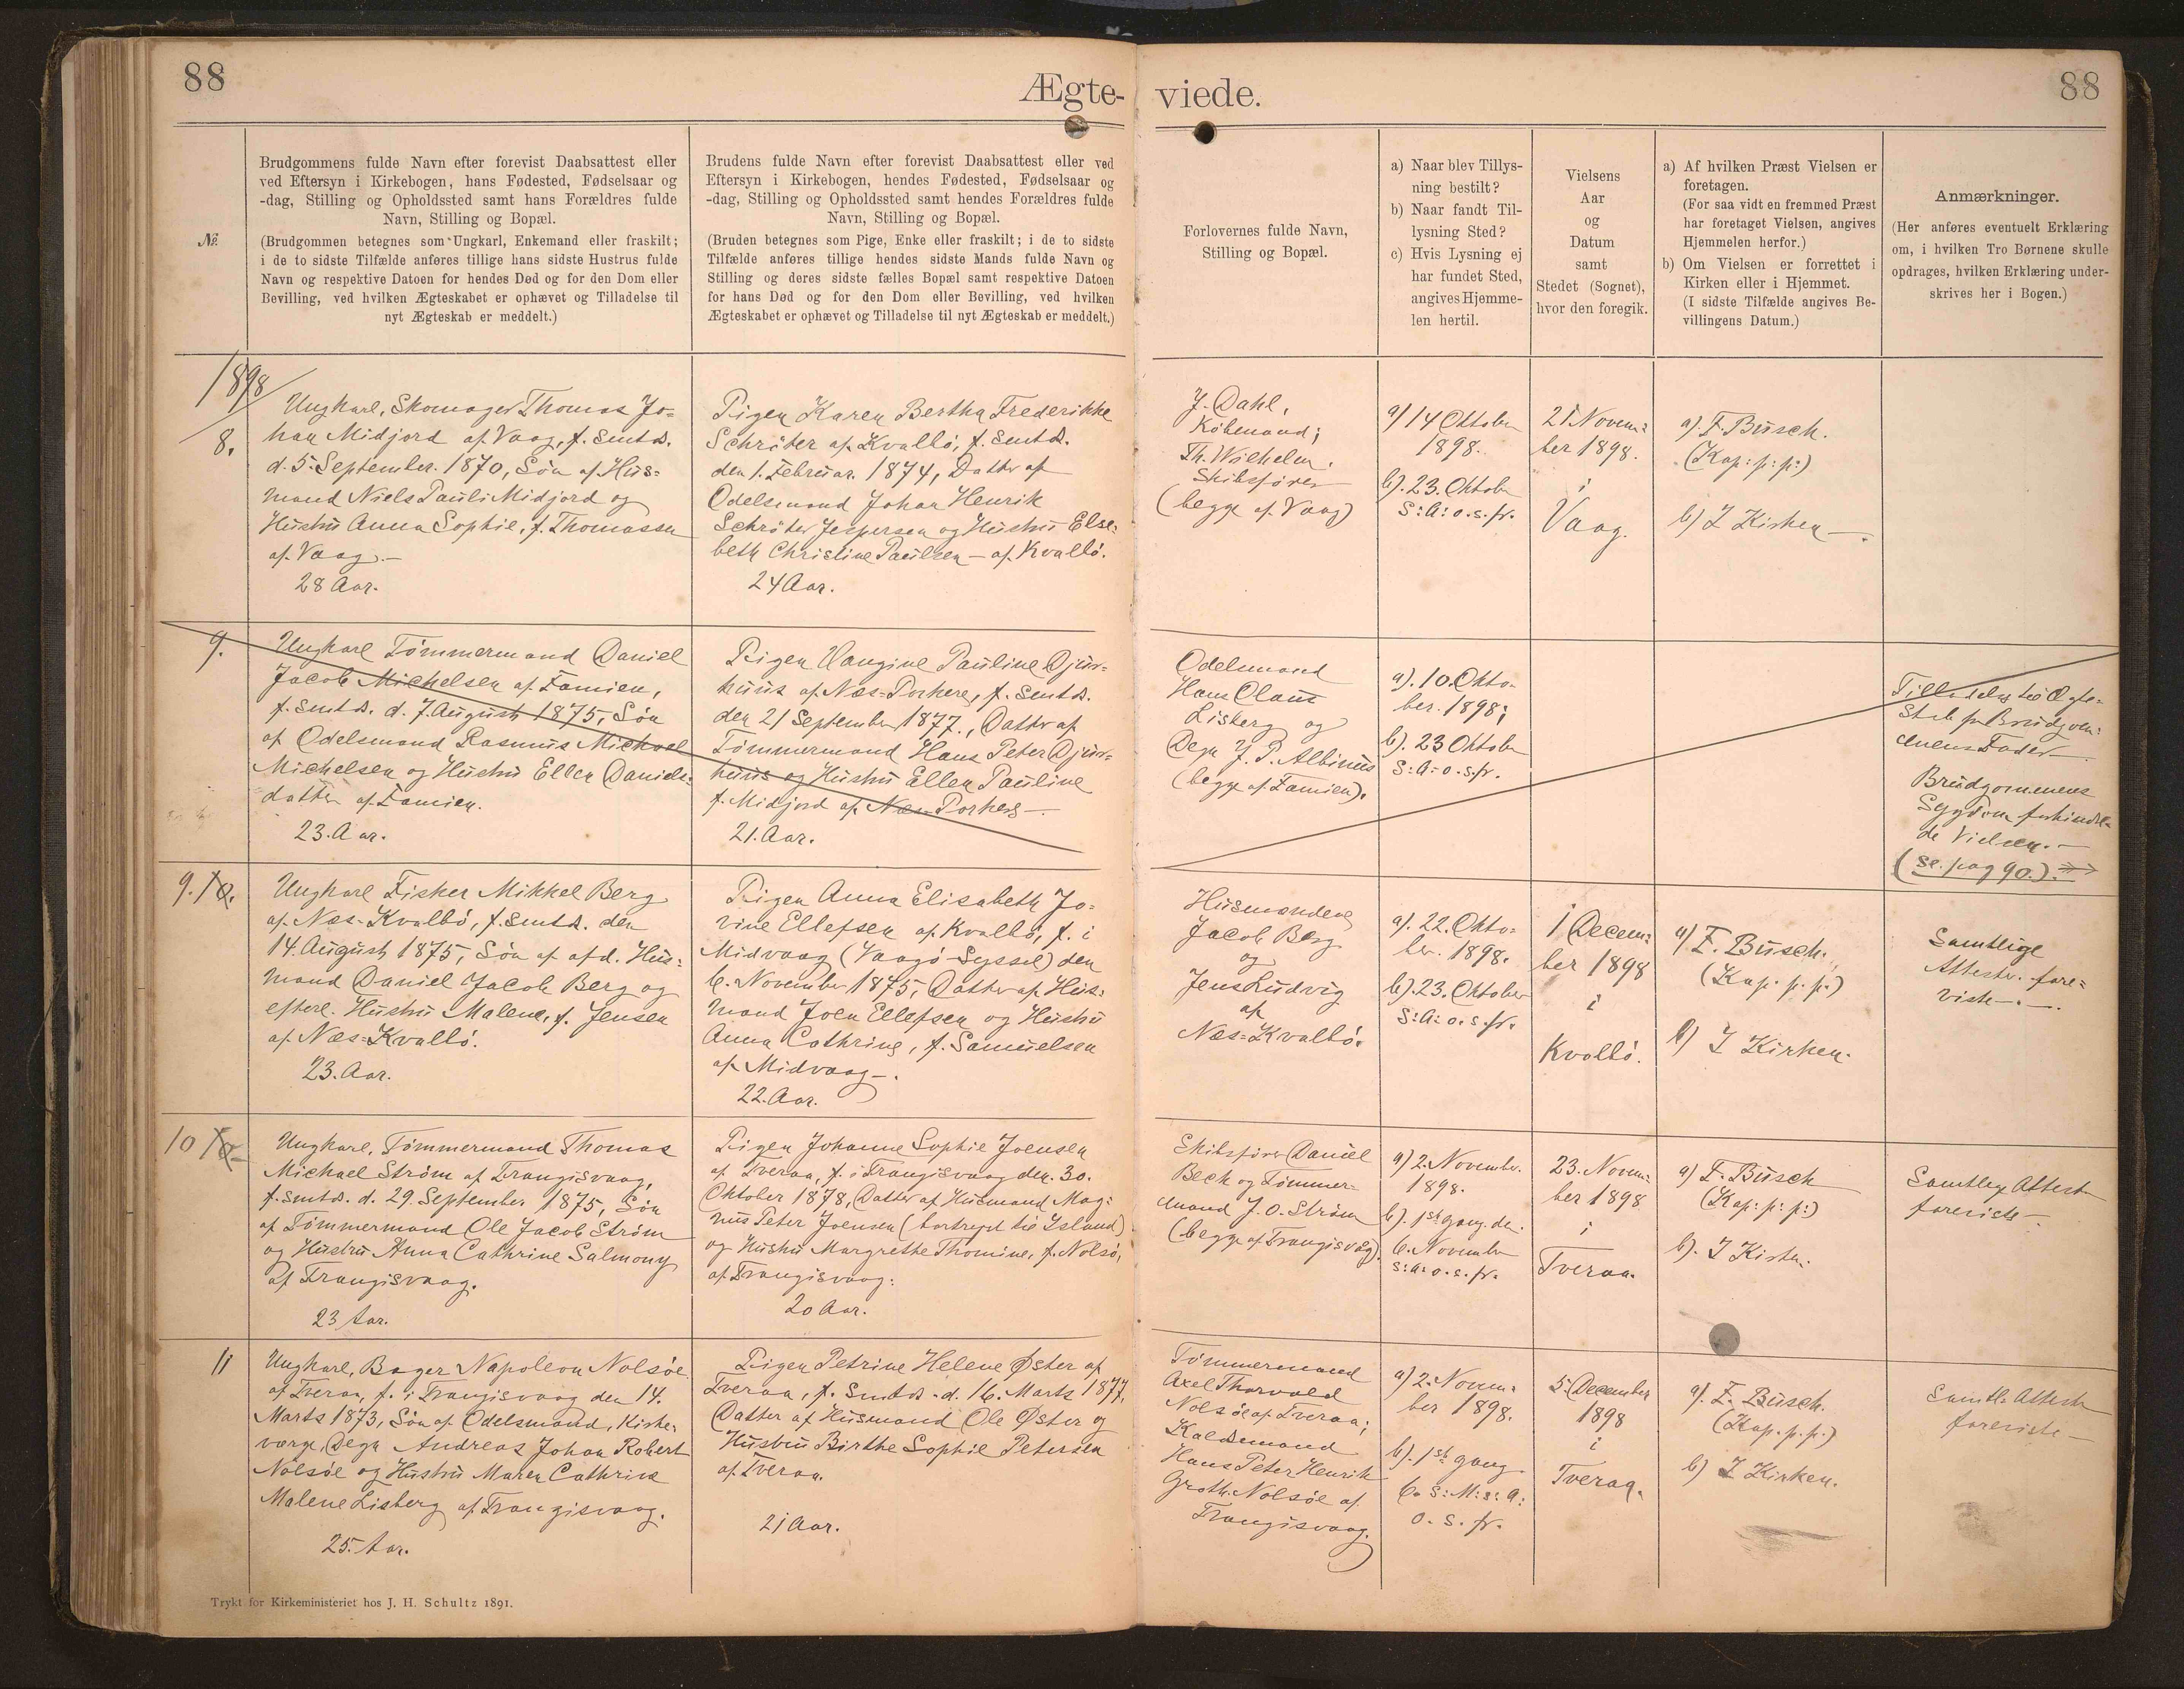 88
Ægte-
viede.
88
№
Brudgommens fulde Navn efter forevist Daabsattest eller
ved Eftersyn i Kirkebogen, hans Fødested, Fødselsaar og
-dag, Stilling og Opholdssted samt hans Forældres fulde
Navn, Stilling og Bopæl.
(Brudgommen betegnes som Ungkarl, Enkemand eller fraskilt;
i de to sidste Tilfælde anføres tillige hans sidste Hustrus fulde
Navn og respektive Datoen for hendes Død og for den Dom eller
Bevilling, ved hvilken Ægteskabet er ophævet og Tilladelse til
nyt Ægteskab er meddelt.)
Brudens fulde Navn efter forevist Daabsattest eller ved
Eftersyn i Kirkebogen, hendes Fødested, Fødselsaar og
-dag, Stilling og Opholdssted samt hendes Forældres fulde
Navn, Stilling og Bopæl.
(Bruden betegnes som Pige, Enke eller fraskilt; i de to sidste
Tilfælde anføres tillige hendes sidste Mands fulde Navn og
Stilling og deres sidste fælles Bopæl samt respektive Datoen
for hans Død og for den Dom eller Bevilling, ved hvilken
Ægteskabet er ophævet og Tilladelse til nyt Ægteskab er meddelt.)
Forlovernes fulde Navn,
Stilling og Bopæl.
a) Naar blev Tillys-
ning bestilt?
b) Naar fandt Til-
lysning Sted?
c) Hvis Lysning ej
har fundet Sted,
angives Hjemme-
len hertil.
Vielsens
Aar
og
Datum
samt
Stedet (Sognet),
hvor den foregik.
a) Af hvilken Præst Vielsen er
foretagen.
(For saa vidt en fremmed Præst
har foretaget Vielsen, angives
Hjemmelen herfor.)
b) Om Vielsen er forrettet i
Kirken eller i Hjemmet.
(I sidste Tilfælde angives Be-
villingens Datum.)
Anmærkninger.
(Her anføres eventuelt Erklæring
om, i hvilken Tro Børnene skulle
opdrages, hvilken Erklæring under-
skrives her i Bogen.)
1898
8.
Ungkarl, Skomager Thomas Jo=
han Midjord af Vaag, f. smtds.
d. 5. September 1870, Søn af Hus=
mand Niels Pauli Midjord og
Hustru Anna Sophie, f. Thomassen
af Vaag.-
28 Aar.
Pigen Karen Bertha Frederikke
Schröter af Kvalbö, f. smtds.
den 1. Februar 1874, Datter af
Odelsmand Johan Henrik
Schröter Jespersen og Hustru Else=
beth Christine Paulsen - af Kvalbö.
24 Aar.
J. Dahl,
Köbmand;
Th. Wilhelm.
Skibsfører
(begge af Vaag)
a) 14 Oktober
1898.
b). 23. Oktober
S: A: o. s. fr.
21. Novem=
ber 1898.
i
Vaag.
a) F. Busch.
(Kap: p: p:)
b) I Kirken -.
9.
Ungkarl Tömmermand Daniel
Jacob Michelsen af Famien,
f. smtds. d. 7. August 1875, Søn
af Odelsmand Rasmus Michael
Michelsen og Hustru Ellen Daniels=
datter af Famien.
23. Aar.
Pigen Hangine Pauline Djur=
huus af Næs=Porkere, f. smtds.
den 21 September 1877., Datter af
Tömmermand Hans Peter Djur=
huus og Hustru Ellen Pauline
f. Midjord af Næs Porkere -.
21. Aar.
Odelsmand
Hans Claus
Lisberg og
Degn J. P. Albinus
(begge af Famien).
a). 10. Okto=
ber. 1898;
b). 23 Oktober
S: A: o. s. fr.
Brudgommens
Sygdom forhindre=
de Vielsen. -
(se. pag 90.).
9. 10.
Ungkarl Fisker Mikkel Berg
af Næs-Kvalbö, f. smtds. den
14. August 1875, Søn af afd. Hus=
mand Daniel Jacob Berg og
efterl. Hustru Malene, f. Jensen
af Næs=Kvalbö.
23. Aar.
Pigen Anna Elisabeth Jo=
vine Ellefsen af Kvalbö, f. i
Midvaag (Vaagö-Syssel) den
6. November 1875, Datter af Hus=
mand Joen Ellefsen og Hustru
Anna Cathrine, f. Samuelsen
af Midvaag -.
22. Aar.
Husmændene
Jacob Berg
og
Jens Ludvig
af
Næs=Kvalbö.
a). 22. Okto=
ber. 1898.
b). 23. Oktober
S: A: o. s. fr.
1 Decem=
ber 1898
i
Kvalbö.
a) F. Busch.
(Kap. p. p.)
b) I Kirken.
Samtlige
Attester fore=
viste -.
10 10
Ungkarl, Tömmermand Thomas
Michael Ström af Trangisvaag,
f. smtds. d. 29. September 1875, Søn
af Tömmermand Ole Jacob Ström
og Hustru Anna Cathrine Salmony
af Trangisvaag.
23 Aar.
Pigen Johanne Sophie Joensen
af Tveraa, f. i Trangisvaag den. 30.
Oktober 1878, Datter af Husmand Mag=
nus Peter Joensen (bortrejst til Island)
og Hustru Margrethe Thomine, f. Nolsö,
af Trangisvaag.
20 Aar.
Skibsfører Daniel
Bech og Tömmer=
mand J. O. Ström
(begge af Trangisvåg).
a) 2. November.
1898.
b). 1st gang de.
6. November
S: A: o. s. fr.
23. Novem=
ber 1898
i
Tveraa.
a) F. Busch
(Kap: p: p:)
b). I Kirken.
Samtlige Attester
foreviste -.
11
Ungkarl, Bager Napoleon Nolsöe
af Tveraa, f. i Trangisvaag den 14.
Marts 1873, Søn af Odelsmand, Kirke=
værge, Degn Andreas Johan Robert
Nolsöe og Hustru Maren Cathrine
Malene Lisberg af Trangisvaag.
25. Aar.
Pigen Petrine Helene Øster af
Tveraa, f. Smtds. d. 16. Marts 1877,
Datter af Husmand Ole Øster og
Hustru Birthe Sophie Petersen
af Tveraa.
21 Aar.
Tömmermand
Axel Thorvald
Nolsöe af Tveraa;
Hans Peter Henrik
Groth. Nolsöe af
Trangisvaag.
a) 2. Novem=
ber 1898.
b). 1st gang
6. S: M: s: A:
o. s. fr.
5. December
1898
i
Tveraa.
a). F. Busch.
(Kap. p. p.)
b) I Kirken.
Samtl. Attester
foreviste -
Trykt for Kirkeministeriet hos J. H. Schultz 1891.